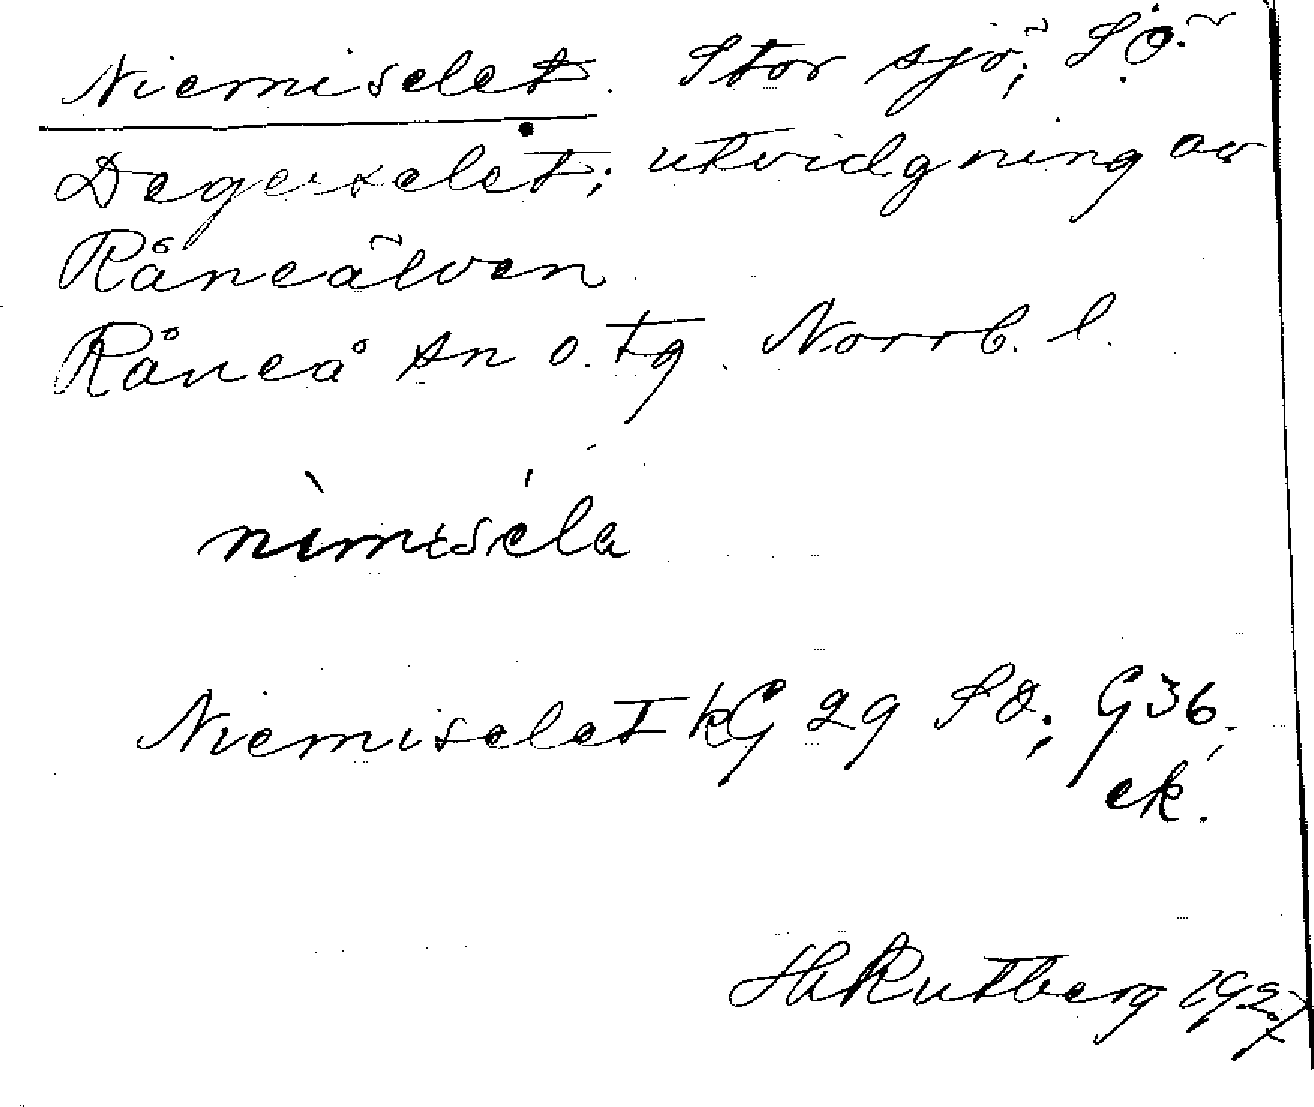 Niemiselet. Stor sjö; SÖ.
Degerselet; utvidgning av
Råneälven
Råneå sn o. tg. Norrb. l.
nìmiséla
Niemiselet kG 29 SO; G 36,
ek.
H Rutberg 1927